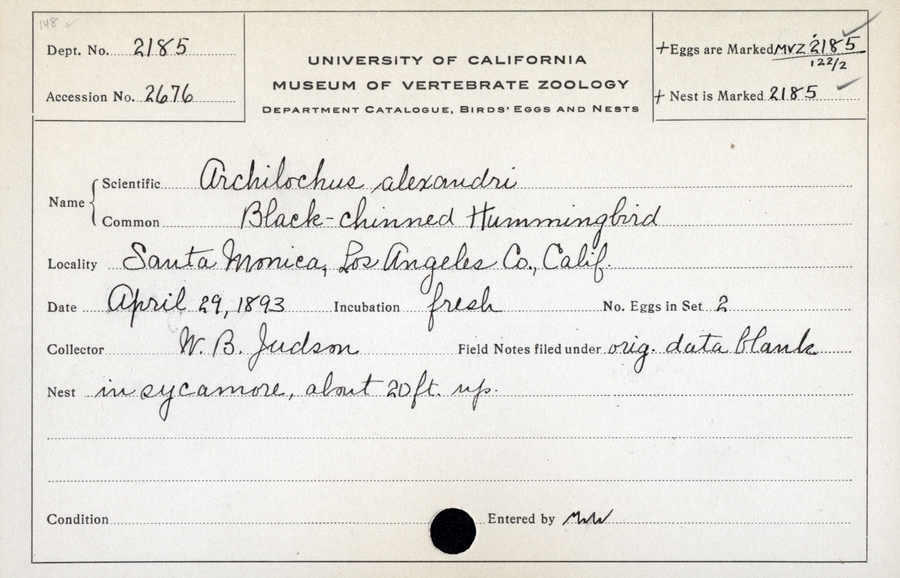 148
Dept. No. 2185
Accession No. 2676
UNIVERSITY OF CALIFORNIA
MUSEUM OF VERTEBRATE ZOOLOGY
DEPARTMENT CATALOGUE, BIRDS' EGGS AND NESTS
+Eggs are Marked MVZ 2185
122/2
+ Nest is Marked 2185
Name
Scientific Archilochus alexandri
Common Black-chinned Hummingbird
Locality Santa Monica, Los Angeles Co., Calif.
Date April 29, 1893 Incubation fresh No. Eggs in Set 2
Collector W. B. Judson Field Notes filed under orig. data blank
Nest in sycamore, about 20 ft. up.
Condition Entered by